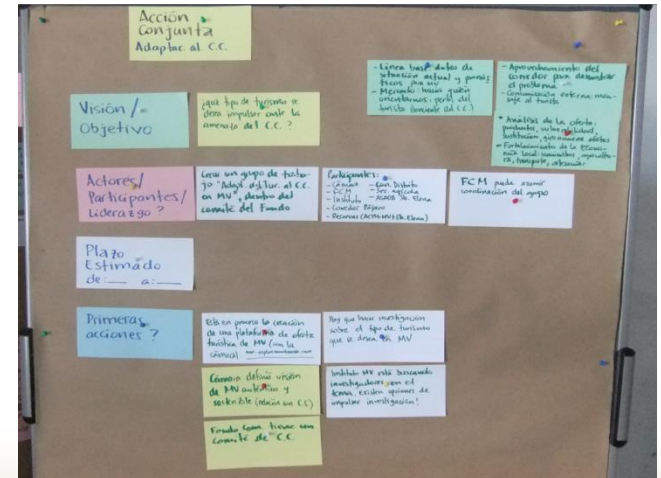 Acción
Conjunta
Adaptac. al C.C.
Visión /
Objetivo
¿qué tipo de turismo se
desea impulsar ante la
amenaza del C.C.?
- Línea base: datos de
situación actual y
para MV
- Mercado: hacia quién
orientarnos: perfil del
turista
- Aprovechamiento del
corredor para
el problema
- Comunicación externa: mensaje
al turista
- Análisis de la oferta:
productos,
- Fortalecimiento de la Economía
local:
transporte,
Actores/
Participantes/
Liderazgo?
Crear un grupo de trabajo
"Adapt. del tur. al C.C.
en MV", dentro del
comité del Fondo
Participantes:
- Cámara
- FCM
- Instituto
- Corredor Pájaro
- Reservas
- Distrito
- Sec. agrícola
- Sta. Elena
FCM puede asumir
coordinación del grupo
Plazo
Estimado
de:___ a:___
Primeras
acciones?
Está en proceso la creación
de una plataforma de oferta
turística de MV (con la
cámara)
Hay que hacer investigación
sobre el tipo de turismo
que se desea en MV
Cámara definió visión
de MV auténtico y
sostenible (relación con C.C.)
Instituto MV está buscando
investigadores en el
tema, existen opciones de
impulsar investigación!
Fondo Com. tiene un
Comité de C.C.